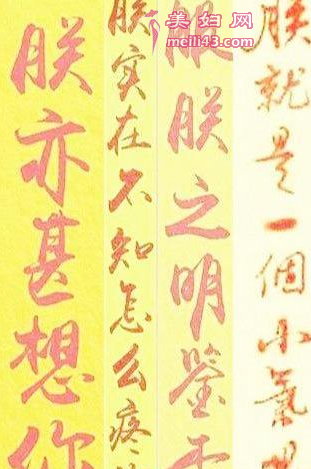 美妇网
meili43.com
朕亦甚想你
朕实在不知怎么疼
朕之明鉴
朕就是一個小氣